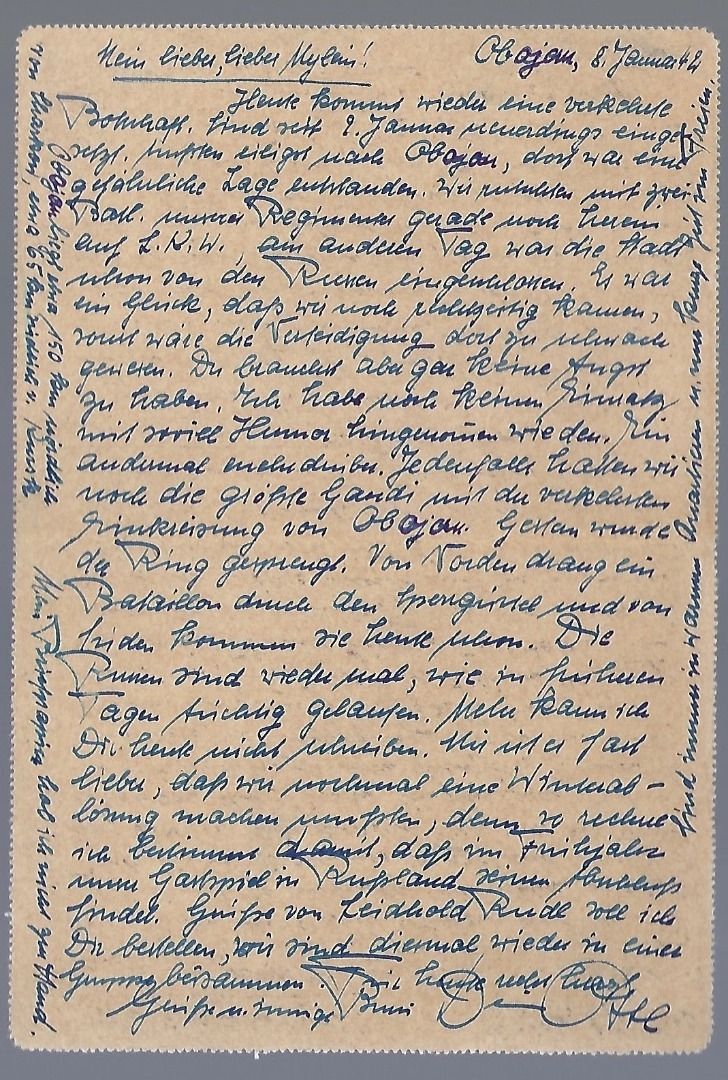 Mein lieber, lieber
Obojan, 8. Januar 42
Heute kommt wieder eine verkehrte
Botschaft. Sind seit 2. Januar neuerdings einge-
setzt. Mußten eiligst nach Obojan, dort war eine
gefährliche Lage entstanden. Wir rutschten mit zwei
Batl. unseres Regimentes gerade noch herein
auf L.K.W., am anderen Tag war die Stadt
schon von den Russen eingeschlossen. Es war
ein Glück, daß wir noch rechtzeitig kamen,
sonst wäre die Verteidigung dort zu schwach
gewesen. Du brauchst aber gar keine Angst
zu haben. Ich habe noch keinen Einsatz
mit soviel Humor hingenommen wie den. Ein
andermal mehr darüber. Jedenfalls hatten wir
noch die größte Gaudi mit der verkehrten
Einkreisung von Obojan. Gestern wurde
der Ring gesprengt. Von Norden drang ein
Bataillon durch den Sperrgürtel und von
Süden kommen sie heute schon. Die
Russen sind wieder mal, wie in früheren
Tagen tüchtig gelaufen. Mehr kann ich
Dir heute nicht schreiben. Mir ist es fast
lieber, daß wir nochmal eine Winterab-
lösung machen mußten, denn so rechne
ich bestimmt damit, daß im Frühjahr
unser Gastspiel in Rußland seinen Abschluß
findet. Grüße von Leidhold Rudl soll ich
Dir bestellen, wir sind diesmal wieder in einer
Gruppe beisammen. Für heute recht herzl.
Grüße u. innige Bussi Dein
Obojan liegt etwa 150 km nördlich
von Charkow, etwa 65 km südlich v. Kursk
Mein hab ich nicht zur Hand.
Sind immer in warmen Quartieren u. nur kurze Zeit im Freien.